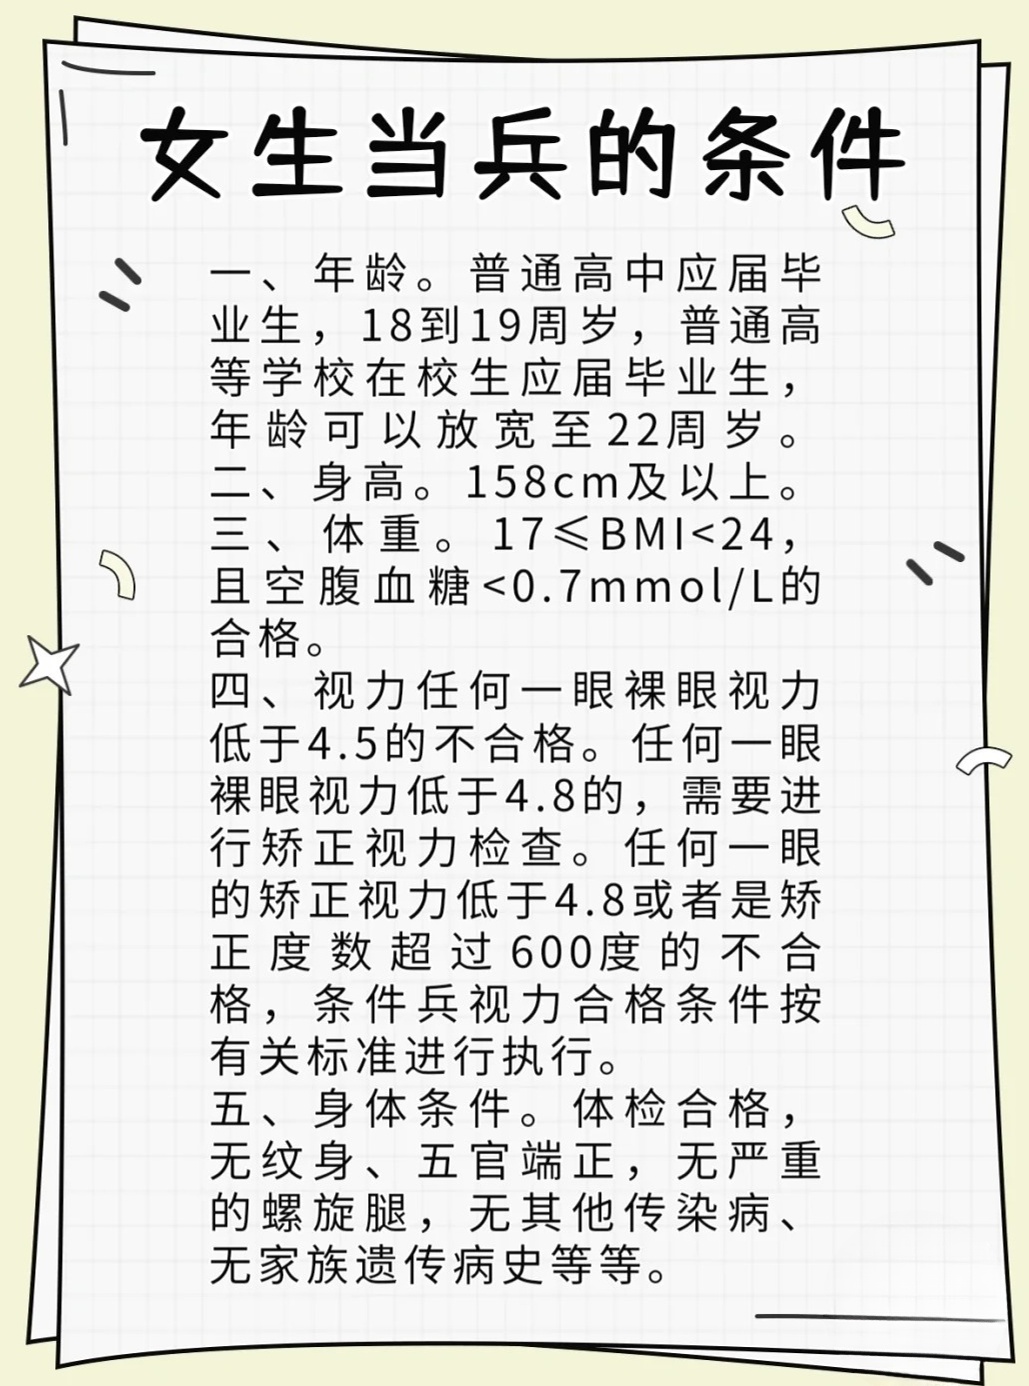 女生当兵的条件
一、年龄。普通高中应届毕
业生，18到19周岁，普通高
等学校在校生应届毕业生，
年龄可以放宽至22周岁。
二、身高。158cm及以上。
三、体重。17≤BMI<24，
且空腹血糖<0.7mmol/L的
合格。
四、视力任何一眼裸眼视力
低于4.5的不合格。任何一眼
裸眼视力低于4.8的，需要进
行矫正视力检查。任何一眼
的矫正视力低于4.8或者是矫
正度数超过600度的不合
格，条件兵视力合格条件按
有关标准进行执行。
五、身体条件。体检合格，
无纹身、五官端正，无严重
的螺旋腿，无其他传染病、
无家族遗传病史等等。